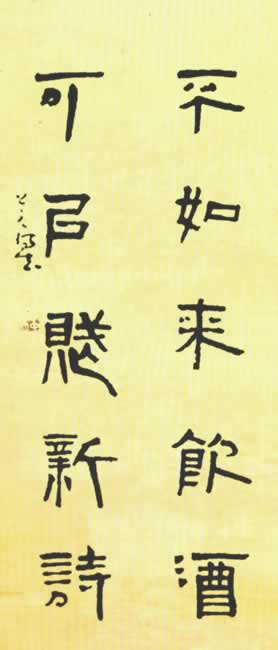 不如来飲酒
可以賦新詩